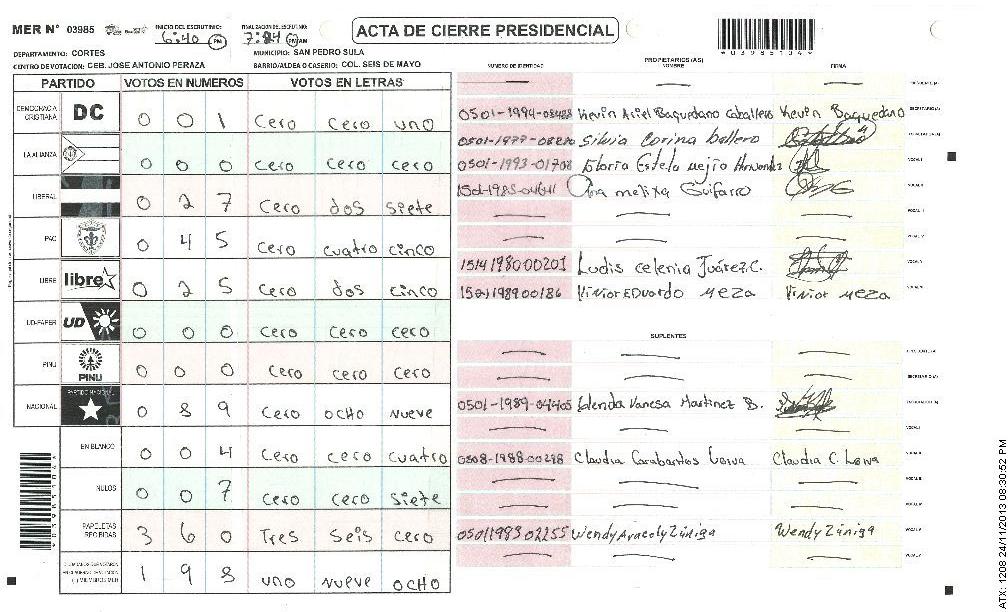 MER N° 03985
INICIO DEL ESCRUTINIO: 6:40 PM
FINALIZACION DEL ESCRUTINIO: 7:24 PM AM
ACTA DE CIERRE PRESIDENCIAL
03985104
DEPARTAMENTO: CORTES
MUNICIPIO: SAN PEDRO SULA
CENTRO DE VOTACION: CEB. JOSE ANTONIO PERAZA
BARRIO/ALDEA O CASERIO: COL. SEIS DE MAYO
PARTIDO VOTOS EN NUMEROS VOTOS EN LETRAS
DEMOCRACIA CRISTIANA DC 0 0 1 Cero Cero uno
LA ALIANZA 0 0 0 cero cero cero
LIBERAL 0 2 7 Cero dos siete
PAC 0 4 5 cero cuatro cinco
LIBRE libre 0 2 5 Cero dos cinco
UD-FAPER UD 0 0 0 cero cero cero
PINU PINU 0 0 0 cero cero cero
NACIONAL PARTIDO NACIONAL 0 8 9 Cero OCHO nueve
EN BLANCO 0 0 4 Cero cero cuatro
NULOS 0 0 7 Cero cero siete
PAPELETAS RECIBIDAS 3 6 0 Tres seis cero
1 9 8 uno nueve OCHO
NUMERO DE IDENTIDAD
PROPIETARIOS (AS)
NOMBRE
FIRMA
Kevin Ariel Baquedano Caballero Kevin Baquedano
Silvia Corina
0501-1993-01708 Gloria Estela mejia
Ana melixa Guifarro
1514198000201 Ludis celenia Juárez C.
EDuardo meza meza
SUPLENTES
0501-1989-04405 Vanesa Martinez B.
Claudia Claudia C.
0501198302255 Wendy Aracely Zúniga Wendy Zúniga
ATX: 1208 24/11/2013 08:30:52 PM